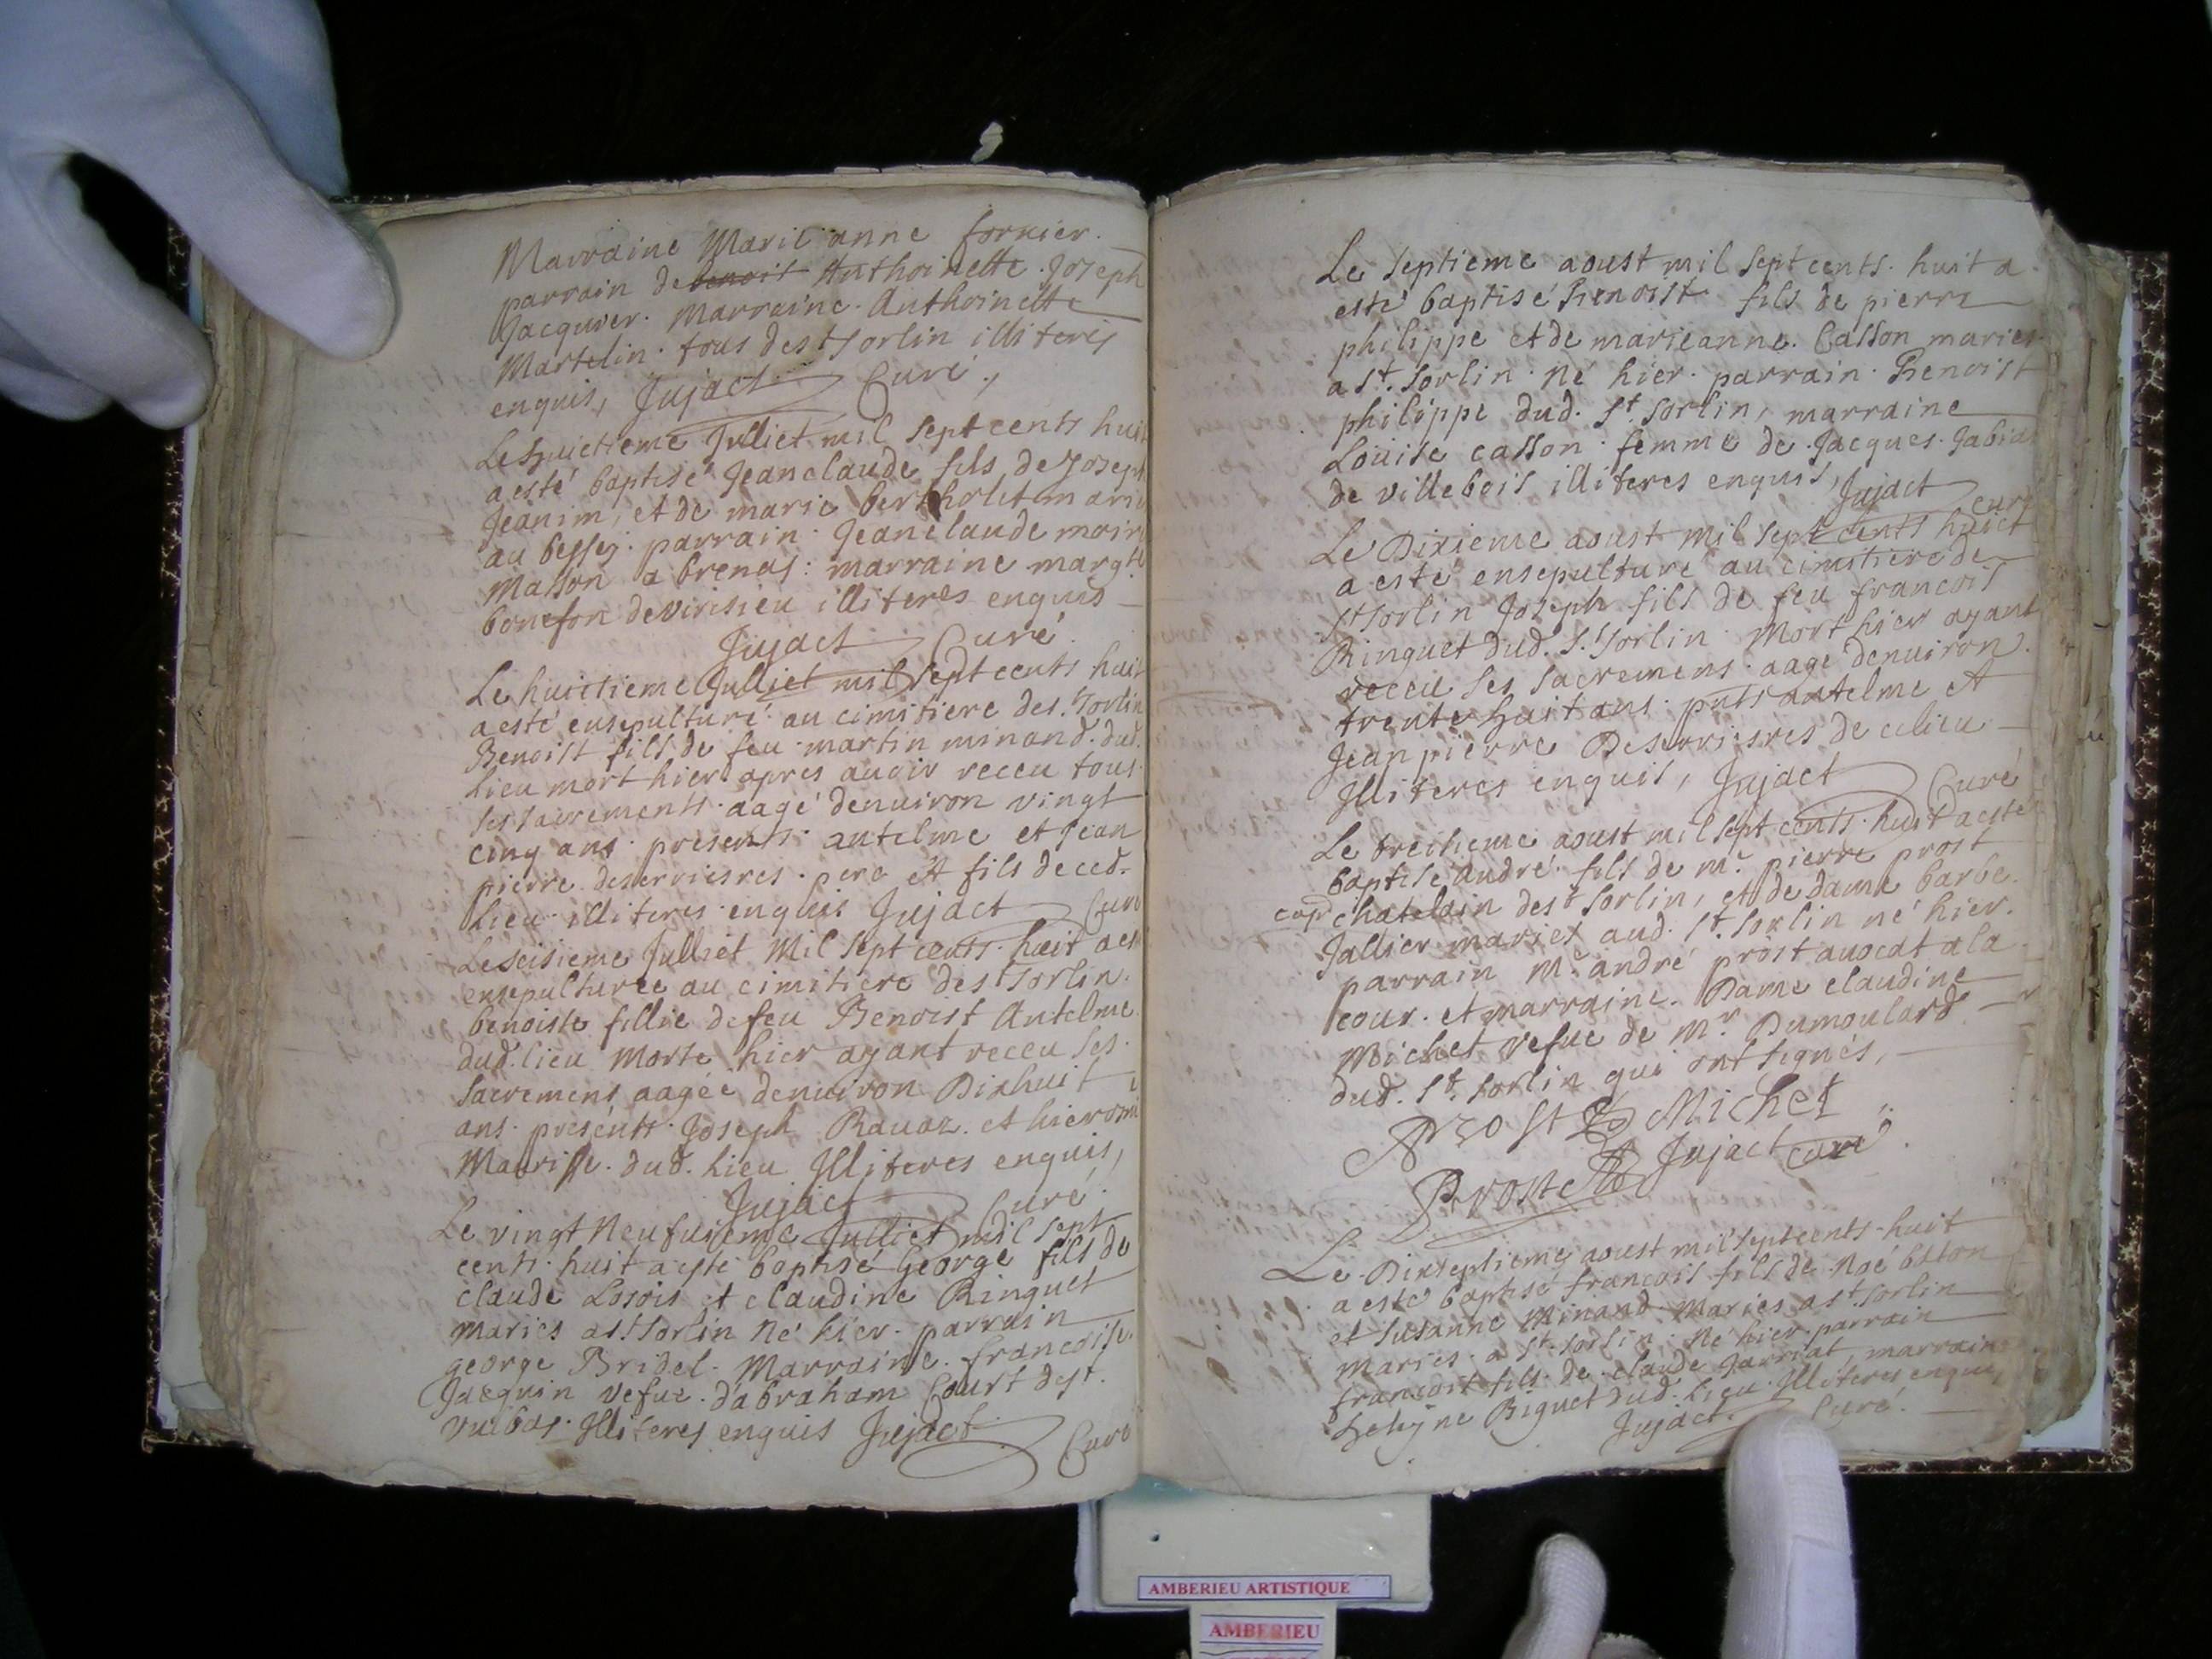 Marraine Marie anne fornier.
parrain de benoit Anthoinette Joseph
Jacquier. Marraine. Anthoinette
Martelin. tous de st sorlin illiteres
enquis, Jujact Curé.,
Le huictieme Julliet mil sept cents huit
a esté baptisé Jeanclaude fils de Joseph
Jeanim, et de marie bertholet mariés
au bessey. parrain. Jeanclaude
Masson a brenas: marraine margte
bonefon de virisieu illiteres enquis
Jujact Curé.
Le huictieme Julliet mil sept cents huit
a esté ensepulturé au cimitiere de s. sorlin
Benoist fils de feu martin minand. dud.
lieu mort hier apres auoir receu tous
ses sacrements. aagé denuiron vingt
cinq ans. presents. antelme et Jean
pierre deserriesres. pere et fils de ced.
lieu. illiteres enquis Jujact Curé
Le seisieme Julliet Mil sept cents. huit a esté
ensepulturée au cimitiere de st sorlin.
benoiste fillie de feu Benoist Antelme
dud. lieu Morte hier ayant receu ses.
sacremens aagée denuiron Dixhuit
ans. presents. Joseph Rauaz. et hierome
Maurisse. dud. lieu Illiteres enquis,
Jujact Curé.
Le vingt Neufuieme Julliet mil sept
cents. huit a esté baptisé George fils de
claude Losois et claudine Ringuet
maries a st sorlin Né hier. parrain
george Bridel. Marraine. francoise.
Jacquin vefue. d'abraham Court de st.
vulbas. Illiteres enquis Jujact Curé
Le septieme aoust mil sept cents. huit a.
esté baptisé Benoist fils de pierre
philippe et de marieanne. Casson maries
a st. sorlin. Né hier. parrain. Benoist
philippe dud. st sorlin, marraine
Loüise casson. femme de Jacques.
de villebois illiteres enquis, Jujact curé
Le Dixieme aoust mil sept cents huict
a esté ensepulturé au cimitiere de
st sorlin Joseph fils de feu francois
Ringuet dud. St. sorlin. Mort hier ayant
receu ses sacremens. aagé denuiron.
trente huit ans. pnts antelme et
Jean pierre Deserriesres de celieu
Illiteres enquis, Jujact Curé
Le treisieme aoust mil sept cents. huit a esté
baptisé André. fils de mr. pierre prost
chatelain de st sorlin, et de dame barbe.
Jallier mariés aud. st. sorlin né hier.
parrain mr. andré prost auocat a la
cour. et marraine. Dame claudine
Michet vefue de mr. Dumoulard
dud. st. sorlin qui ont signés,
Prost Michet
Prost Jujact curé
Le Dixseptieme aoust mil septcents. huit
a esté baptisé francois fils de Noé
et Susanne Minand. Maries a st. sorlin
maries. a st. sorlin. Né hier. parrain
francois fils de claude Jarriat, marraine
Biguet dud. lieu. Illiteres enquis,
Jujact Curé.
AMBERIEU ARTISTIQUE
AMBERIEU